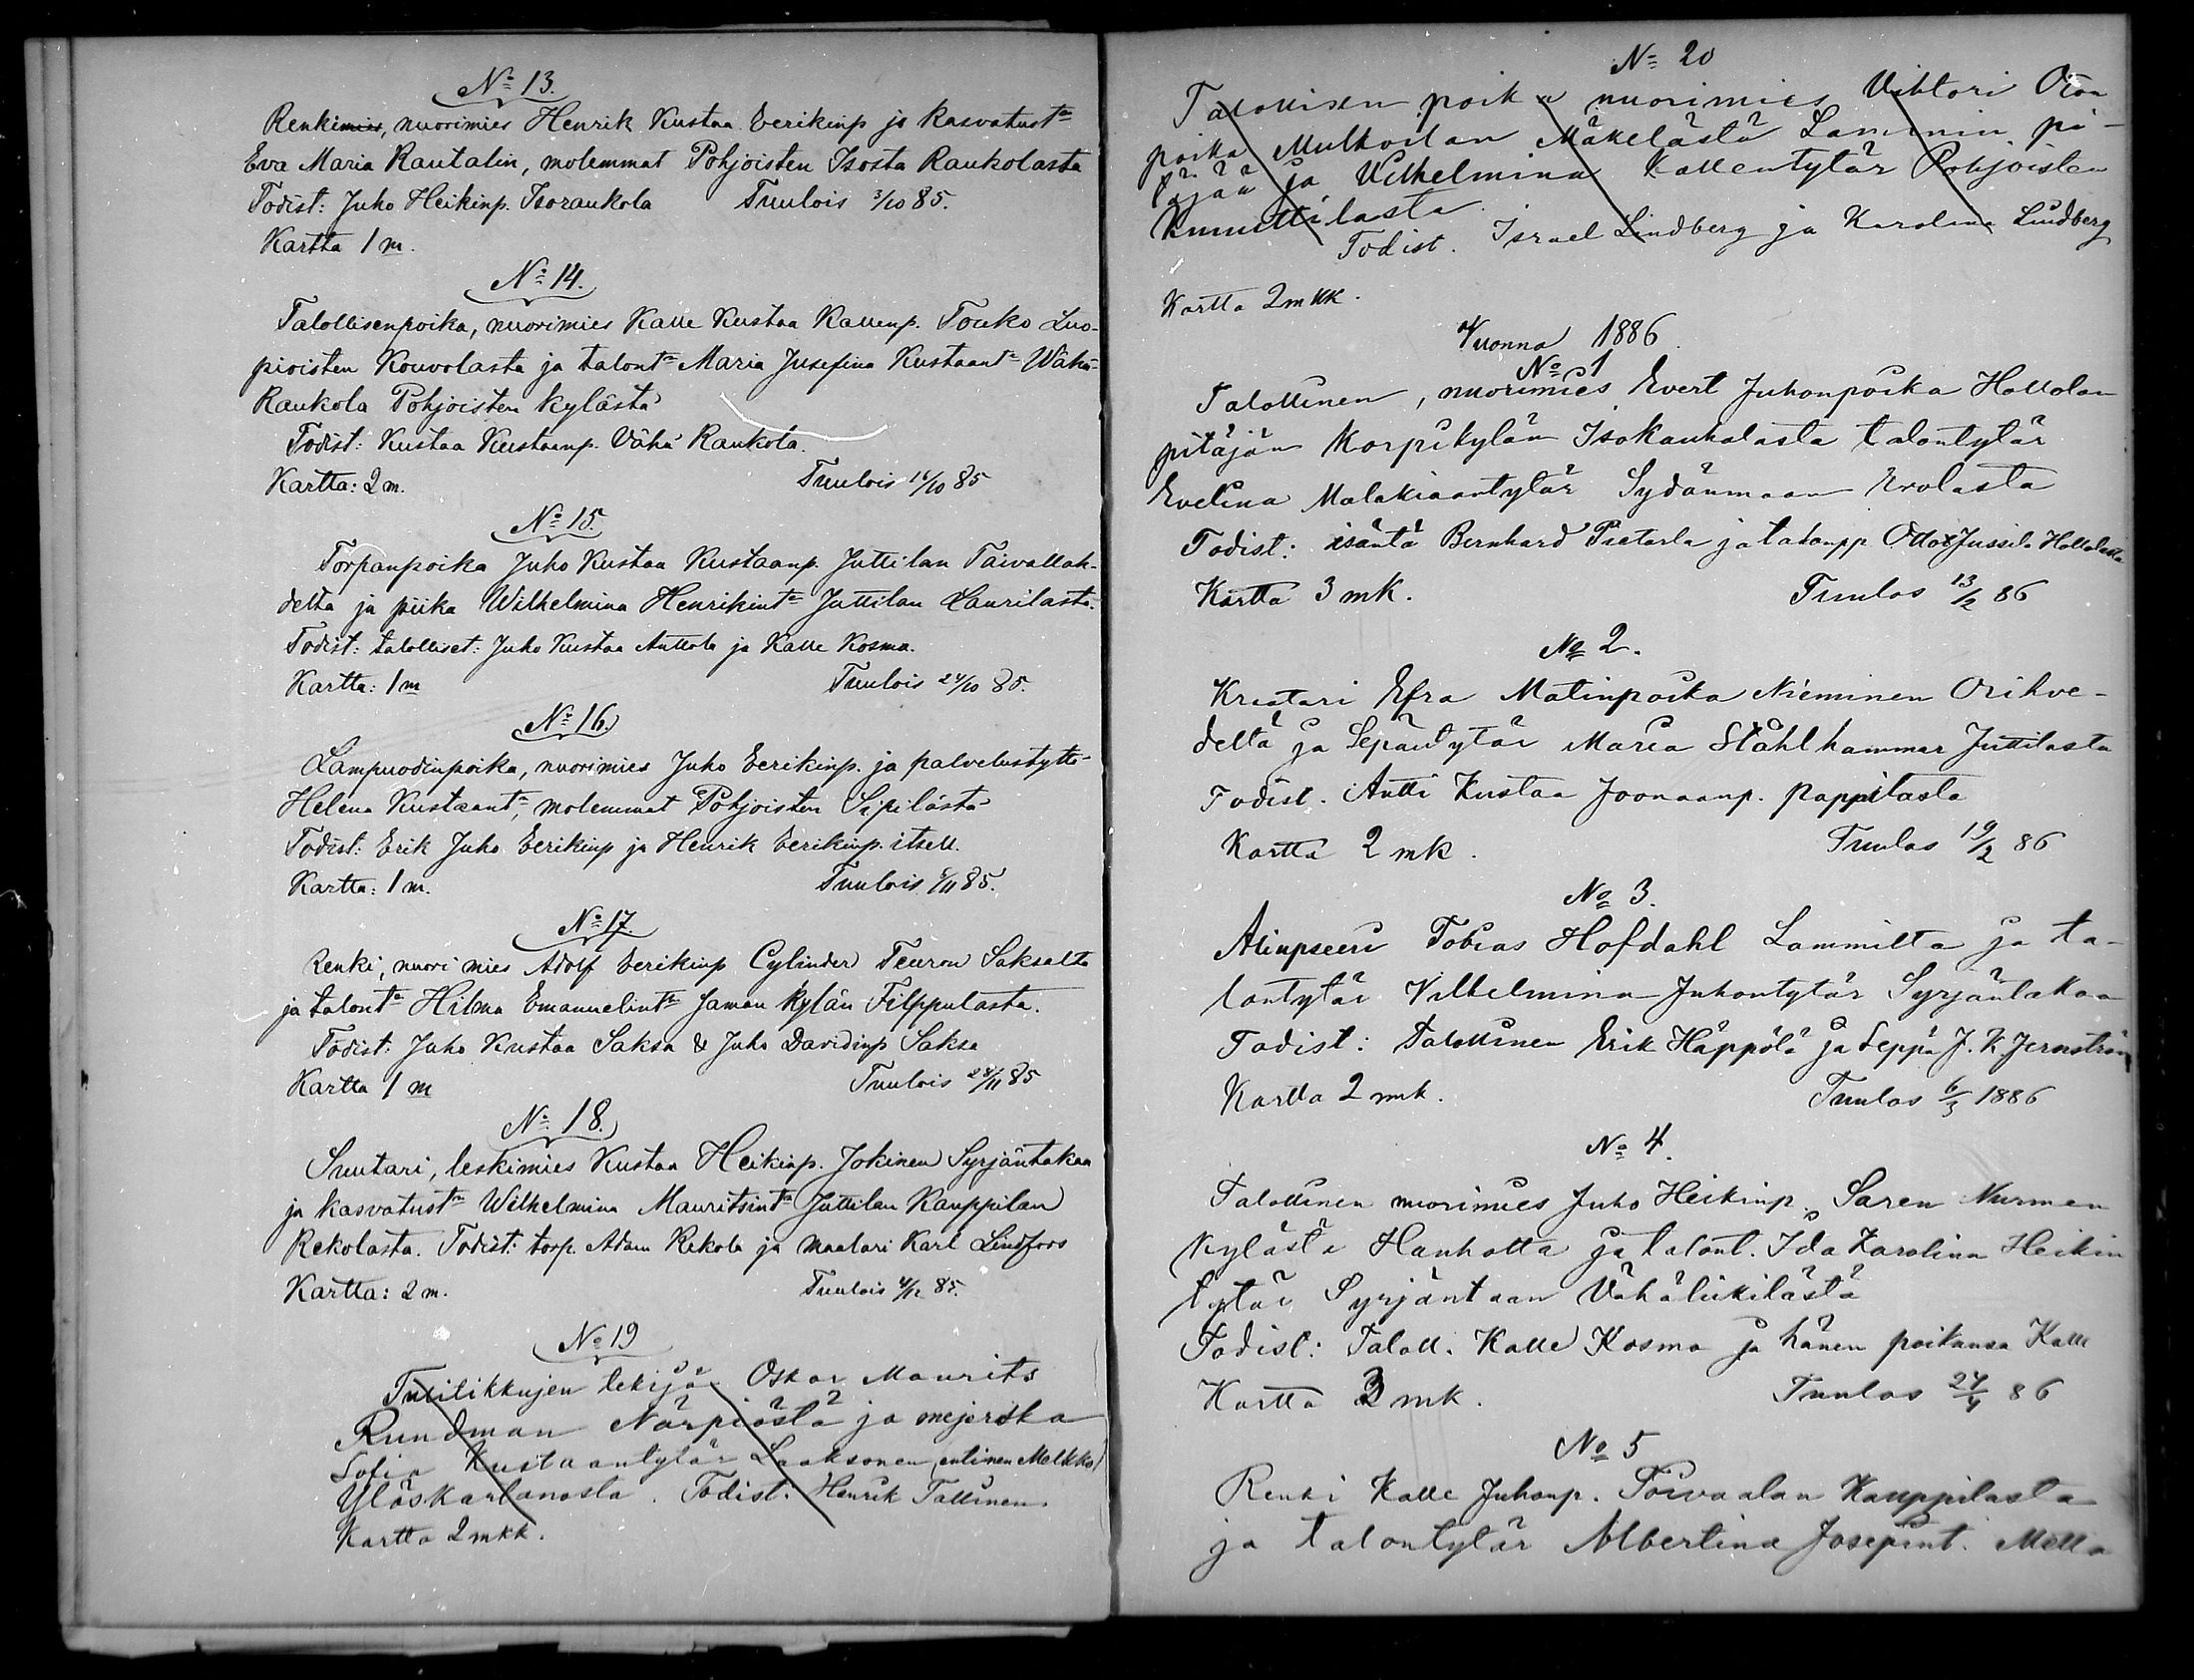 No 13.
Renkimies, nuorimies Henrik Kustaa Eerikinp ja kasvatustr
Eva Maria Rautalin, molemmat Pohjoisten Isosta Raukolasta
Todist: Juho Heikinp. Isoraukola Tuulois 3/10 85.
Kartta 1 m.
No 14.
Talollisenpoika, nuorimies Kalle Kustaa Kallenp. Touko Luo-
pioisten Kouvolasta ja talontr Maria Josefina Kustaantr Wähä-
Raukola Pohjoisten kylästä
Todist: Kustaa Kustaanp. Vähä Raukola.
Kartta: 2 m. Tuulois 16/10 85
No 15.
Torpanpoika Juho Kustaa Kustaanp. Juttilan Taivallah-
delta ja piika Wilhelmina Henrikintr Juttilan Laurilasta.
Todist: talolliset: Juho Kustaa Anttola ja Kalle Kosma.
Kartta: 1 m Tuulois 24/10 85.
No 16.
Lampuodinpoika, nuorimies Juho Eerikinp. ja palvelustyttö
Helena Kustaantr, molemmat Pohjoisten Sipilästä
Todist: Erik Juho Eerikinp ja Henrik Eerikinp. itsell.
Kartta: 1 m. Tuulois /11 85.
No 17.
Renki, nuori mies Adolf Eerikinp Cylinder Teuron Saksalta
ja talontr Hilma Emanuelintr saman kylän Filppulasta.
Todist: Juho Kustaa Saksa & Juho Davidinp Saksa
Kartta 1 m Tuulois 28/11 85
No 18.
Suutari, leskimies Kustaa Heikinp. Jokinen Syrjäntakaa
ja kasvatustr Wilhelmina Mauritsintr Juttilan Kauppilan
Rekolasta. Todist: torp. Adam Rekola ja maalari Karl Lindfors
Kartta: 2 m. Tuulois 4/12 85.
No 19
Tulitikkujen tekijä Oskar Maurits
Rundman Närpiöstä ja mejerska
Sofia Kustaantytär Laaksonen (entinen Melkko)
Yläskartanosta. Todist: Henrik Tallinen.
Kartta 2 mkk.
No 20
Talollisen poika nuorimies Vihtori Oton
poika Mulkoilan Mäkelästä Lammin pi-
täjää ja Vilhelmina Kallentytär Pohjoisten
Knuuttilasta.
Todist. Israel Lindberg ja Karolina Lindberg
Kartta 2 mkk.
Vuonna 1886.
No 1
Talollinen, nuorimies Evert Juhonpoika Hollolan
pitäjän Korpikylän Isokauhalasta talontytär
Evelina Malakiaantytär Sydänmaan Erolasta
Todist: isäntä Bernhard Pietarla ja talonpp Otto Jussila Hollolasta
Kartta 3 mk. Tuulos 13/2 86
No 2.
Kraatari Efra Matinpoika Nieminen Orihve-
deltä ja Sepäntytär Maria Stählhammar Juttilasta
Todist. Antti Kustaa Joonaanp. Pappilasta
Kartta 2 mk. Tuulos 19/2 86
No 3.
Alinpseeri Tobias Hofdahl Lammilta ja ta-
lontytär Vilhelmina Juhontytär Syrjäntakaa
Todist: Talollinen Erik Häppölä ja Seppä J. K. Jernström
Kartta 2 mk. Tuulos 6/3 1886
No 4.
Talollinen nuorimies Juho Heikinp. Saren Nurmen
kylästä Hauholta ja talont. Ida Karolina Heikin
tytär Syrjäntaan Vähäliikilästä
Todist: Taloll. Kalle Kosma ja hänen poikansa Kalle
Kartta 3 mk. Tuulos 24/4 86
No 5
Renki Kalle Juhonp. Toivaalan Kauppilasta
ja talontytär Albertina Josepint. Mella